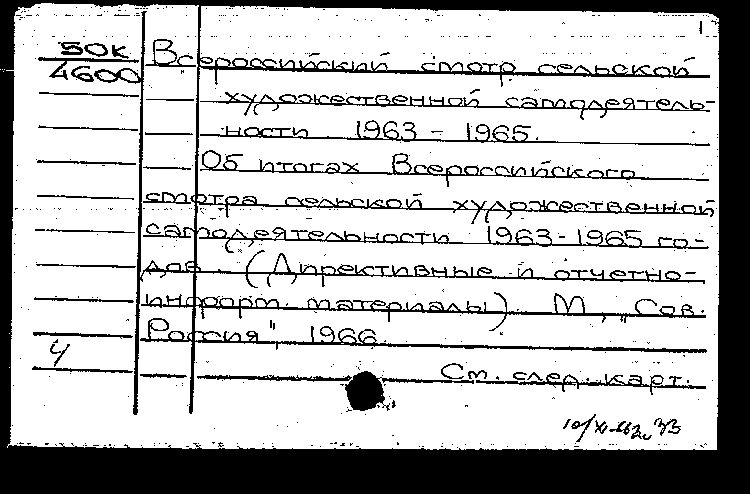 1
50К Всероссийский смотр сельской
4600 художественной самодеятель-
ности 1963 - 1965.
Об итогах Всероссийского
смотра сельской художественной
самодеятельности 1963-1965 го-
дов. (Директивные и отчетно-
информ. материалы). М., „Сов.
Россия", 1966.
4
См. след. карт.